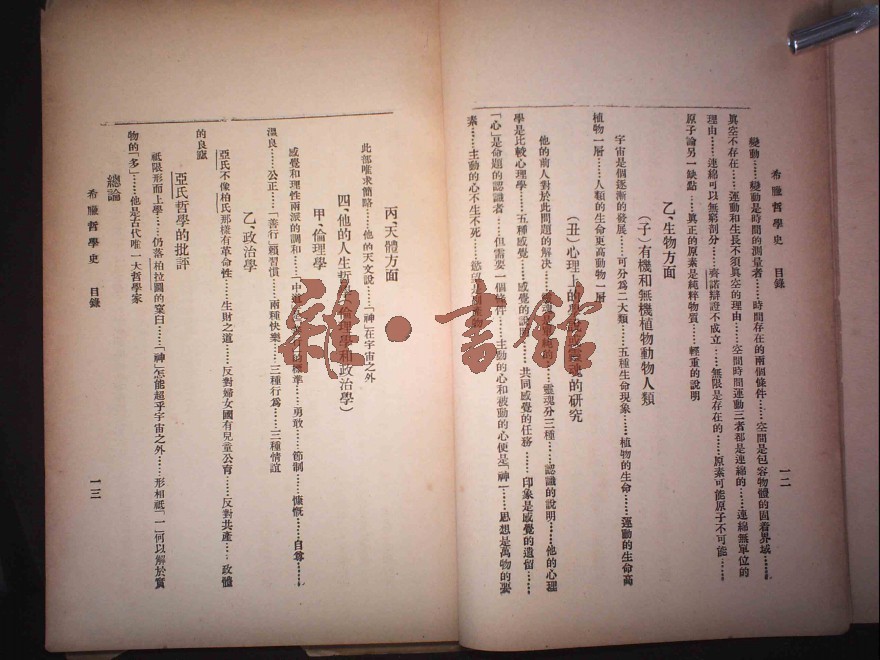 希臘哲學史　目錄　一二
變動……變動是時間的測量者……時間存在的兩個條件……空間是包容物體的固着界域……
眞空不存在……運動和生長不須眞空的理由……空間時間運動三者都是連綿的……連綿無單位的
理由……連綿可以無窮剖分……齊諾辯證不成立……無限是存在的……原素可能原子不可能……
原子論另一缺點……眞正的原素是純粹物質……輕重的說明
乙、生物方面
（子）有機和無機植物動物人類
宇宙是個逐漸的發展……可分爲二大類……五種生命現象……植物的生命……運動的生命高
植物一層……人類的生命更高動物一層
（丑）心理上的　靈魂的研究
他的前人對於此問題的解決……靈魂分三種……認識的說明……他的心理
學是比較心理學……五種感覺……感覺的說明……共同感覺的任務……印象是感覺的遺留……
「心」是命題的認識者……但需要一個條件……主動的心和被動的心便是「神」……思想是萬物的要
素……主動的心不生不死……慾望
丙、天體方面
此部唯求簡略……他的天文說……「神」在宇宙之外
四、他的人生哲學（倫理學和政治學）
甲、倫理學
感覺和理性兩派的調和……「中　的標準……勇敢……節制……慷慨……自尊……
溫良……公正……「善行」賴習慣……兩種快樂……三種行爲……三種情誼
乙、政治學
亞氏不像柏氏那樣有革命性……生財之道……反對婦女國有兒童公育……反對共產……政體
的良窳
亞氏哲學的批評
祗限形而上學……仍落柏拉圖的窠臼……「神」怎能超乎宇宙之外……形相祗「一」何以解於實
物的「多」……他是古代唯一大哲學家
總論
希臘哲學史　目錄　一三
雜·書館